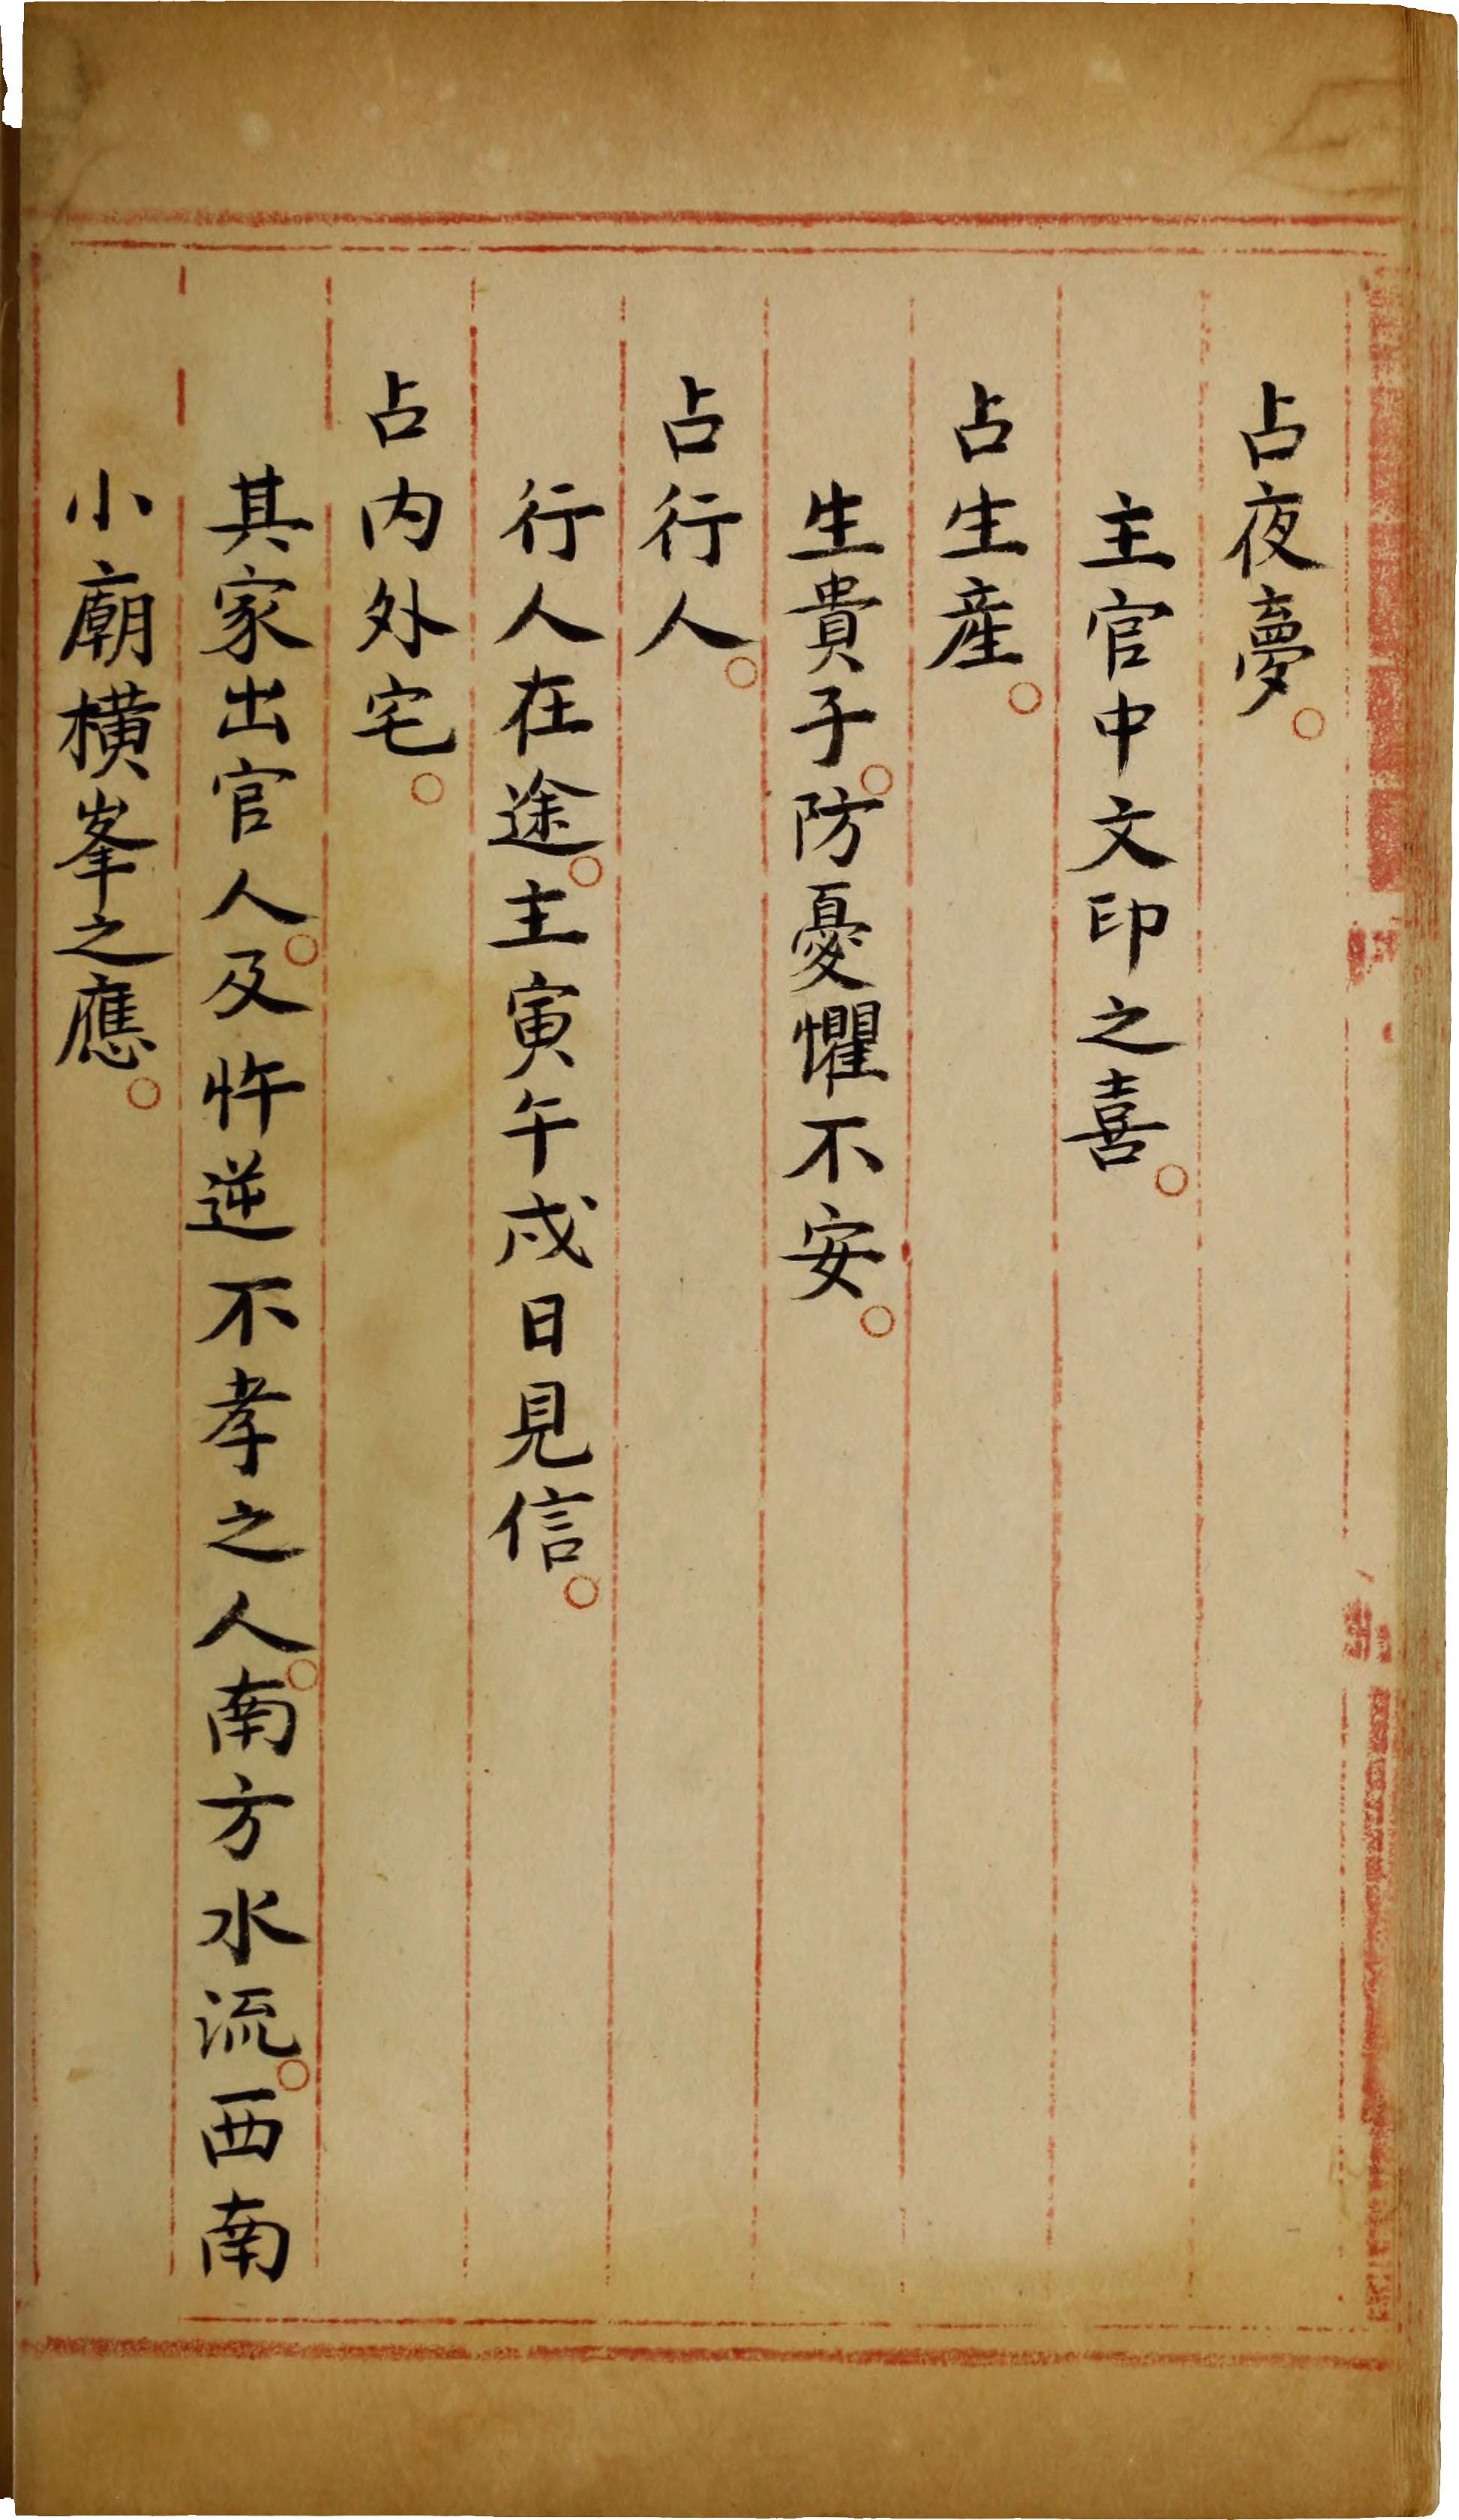 占夜夢。
主官中文印之喜。
占生產。
生貴子。防憂懼不安。
占行人。
行人在途。主寅午戌日見信。
占内外宅。
其家出官人。及忤逆不孝之人。南方水流。西南
小廟橫峯之應。